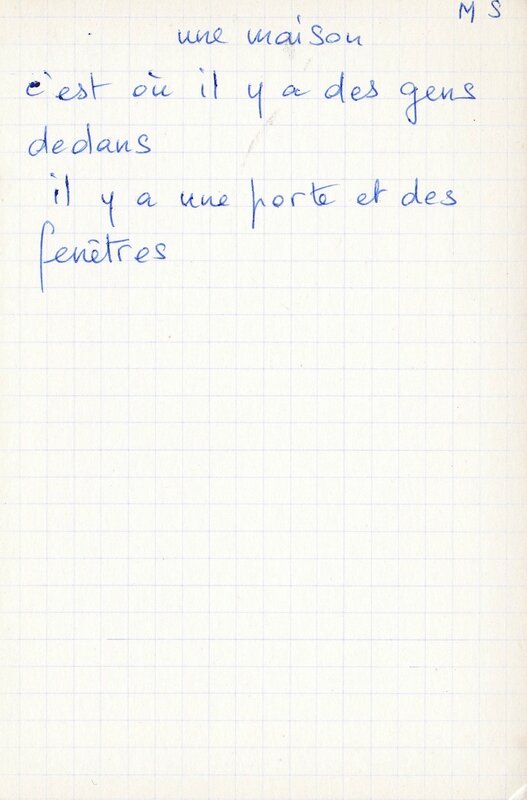 M S
une maison
c'est où il y a des gens
dedans
il y a une porte et des
fenêtres